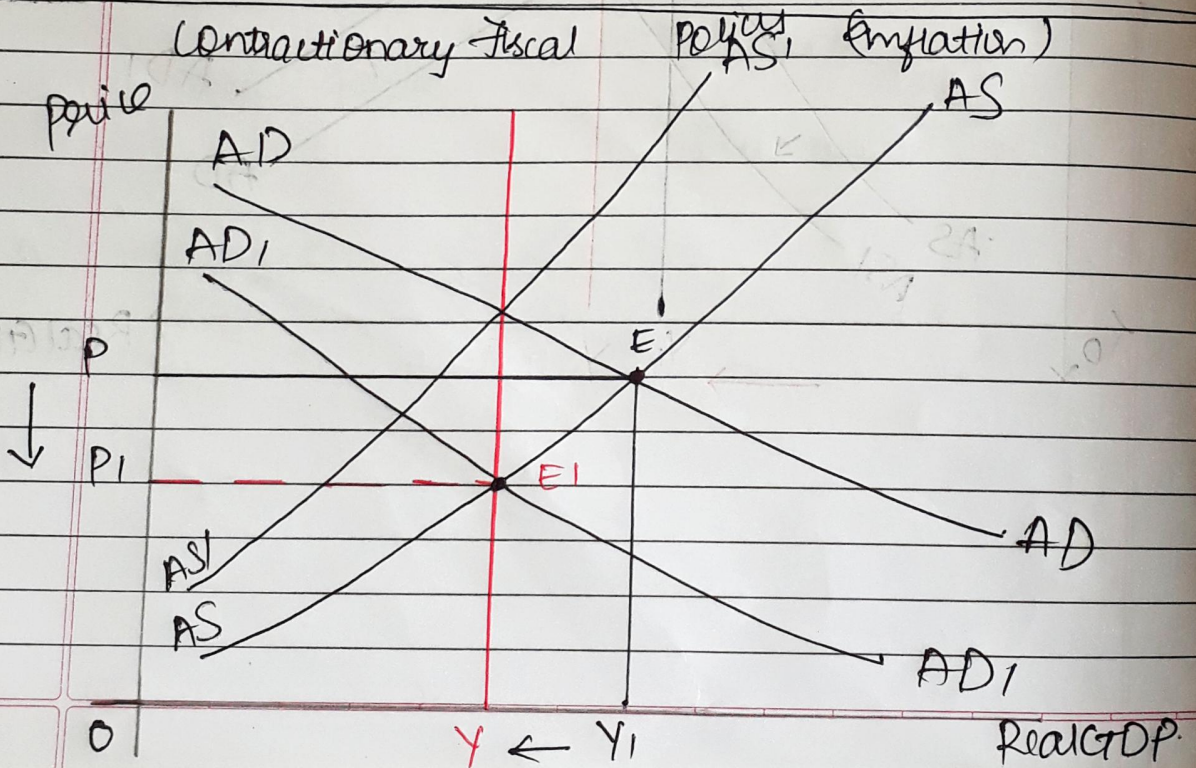 Contractionary Fiscal Policy (Inflation)
AS1
AS
Price
AD
AD1
E
P
P1
E1
AS1
AS
AD
AD1
O
Y ← Y1
Real GDP.